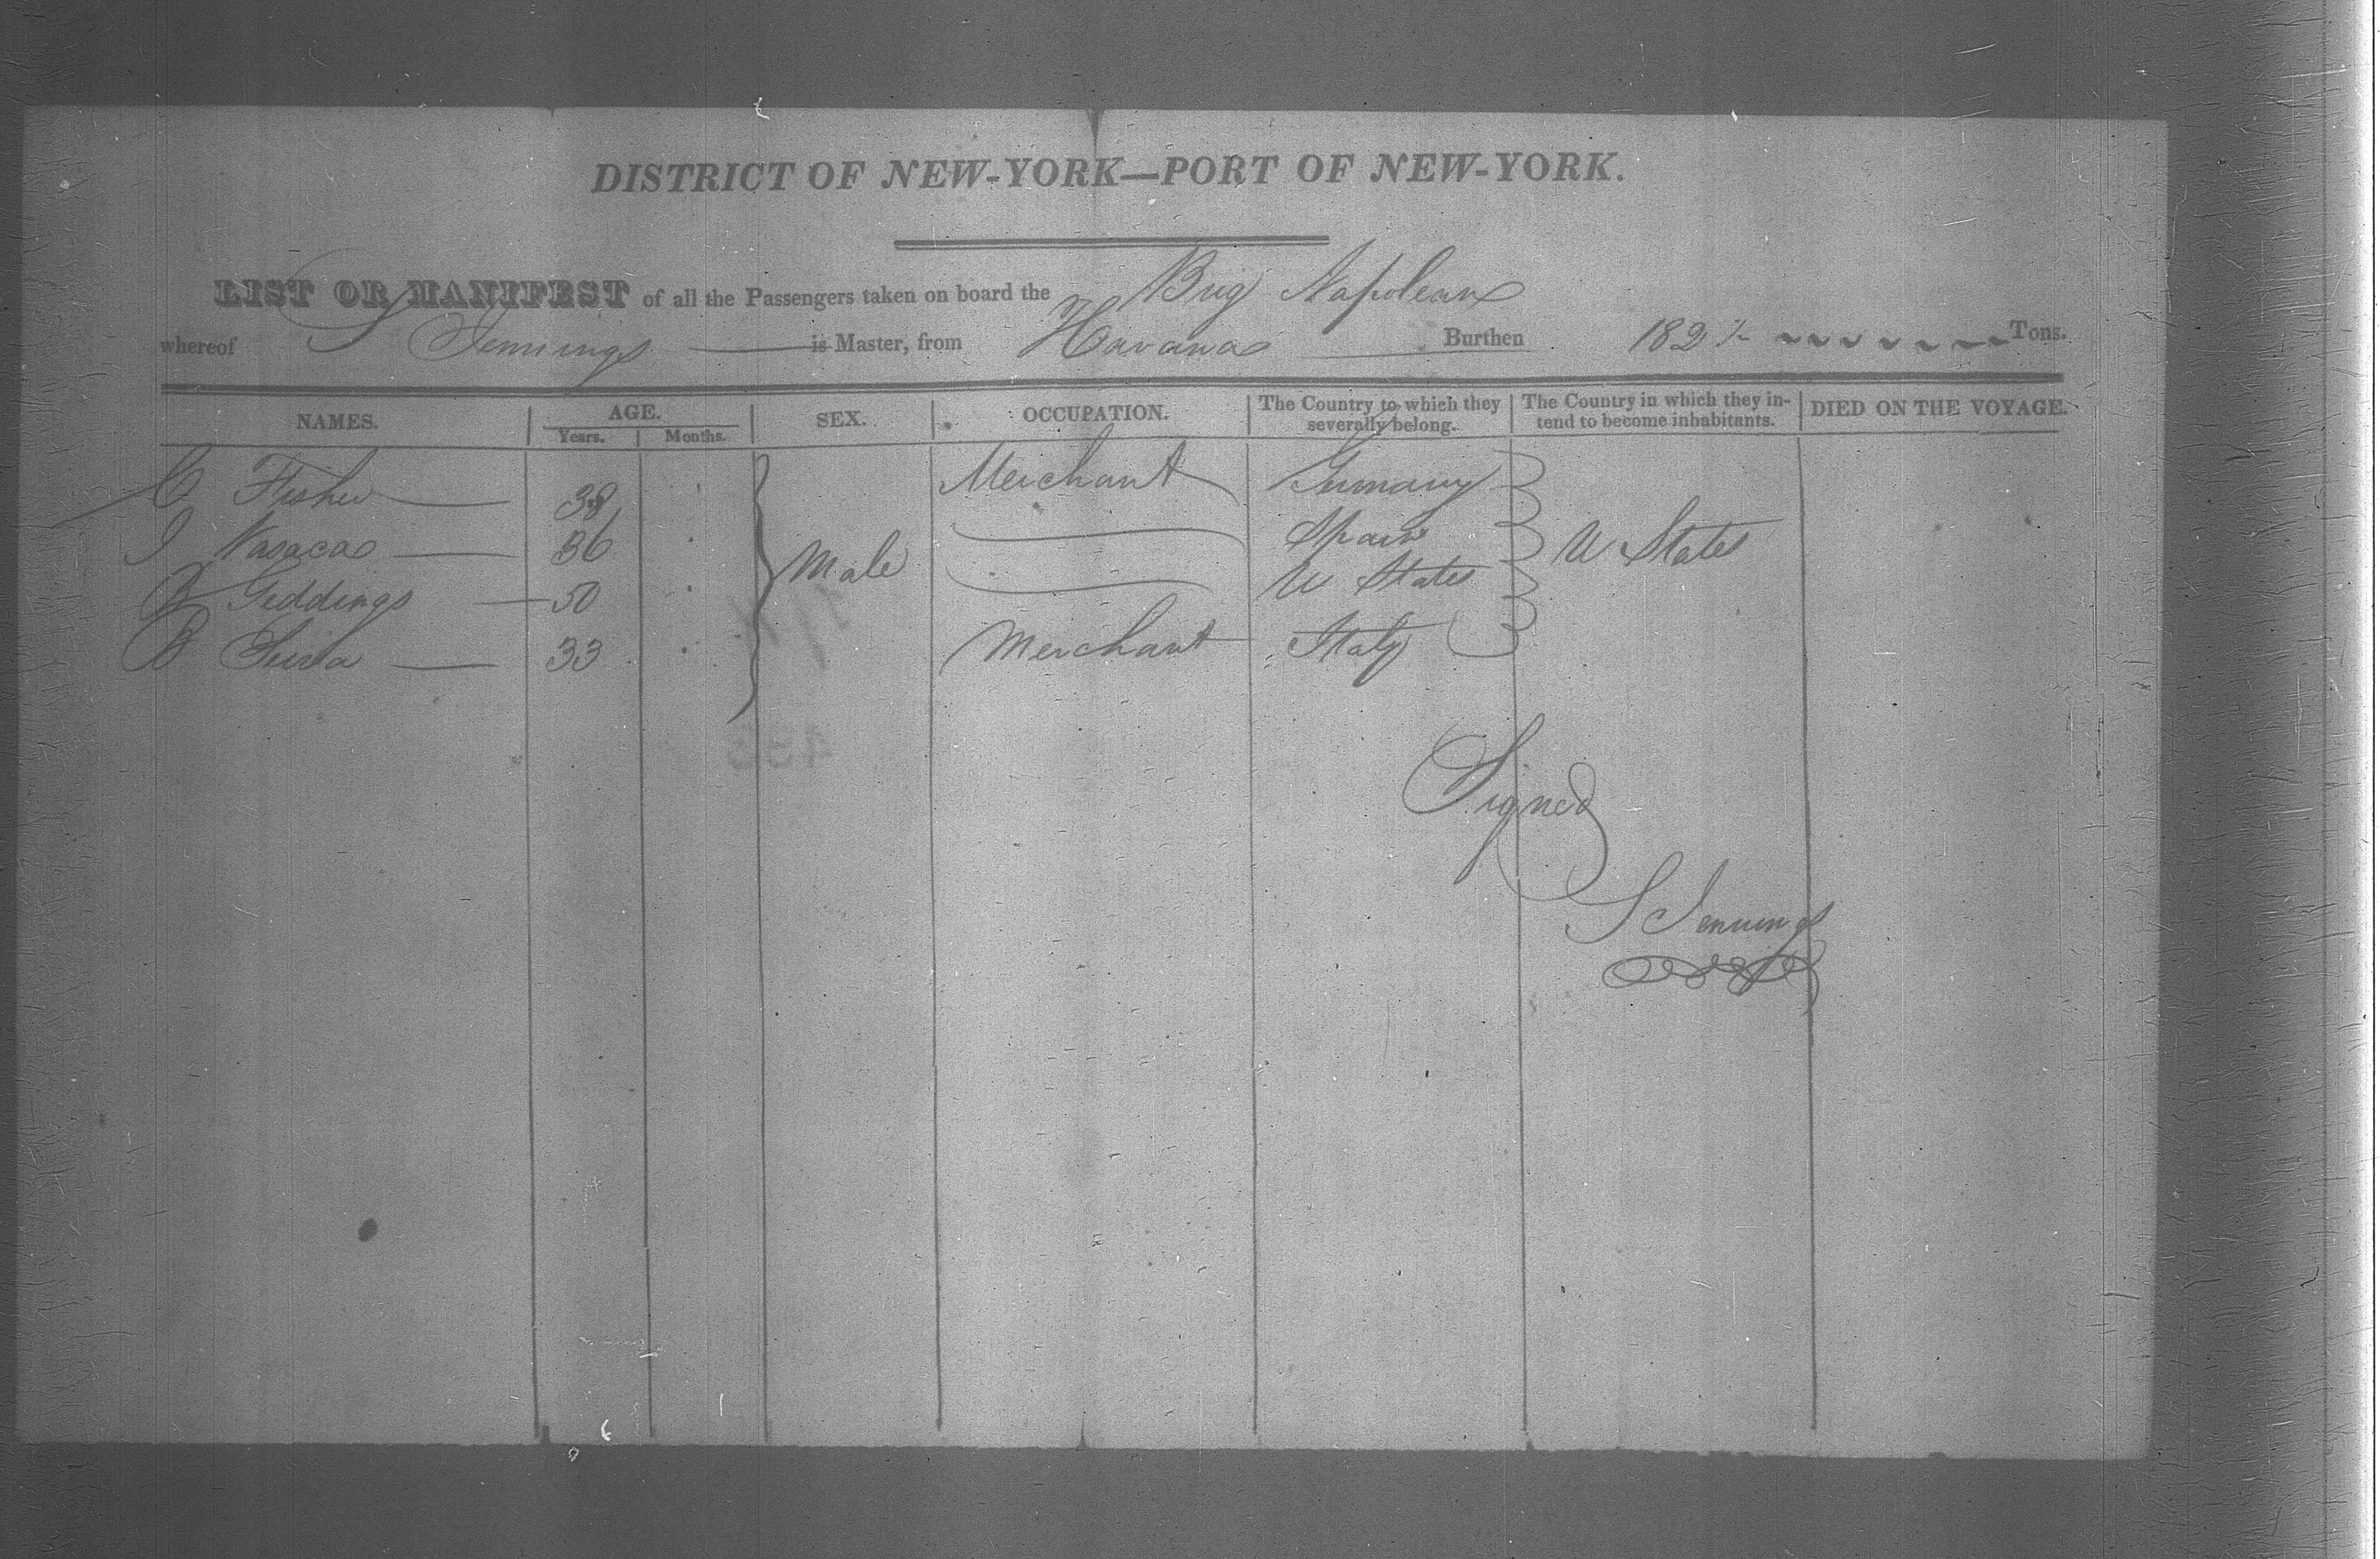 DISTRICT OF NEW-YORK—PORT OF NEW-YORK.
LIST OR MANIFEST of all the Passengers taken on board the Brig Napolean
whereof S Jennings is Master, from Havana Burthen 182 Tons.
NAMES. AGE. SEX. OCCUPATION. The Country to which they severally belong. The Country in which they intend to become inhabitants. DIED ON THE VOYAGE.
Years. Months.
C Fisher 38 Merchant Germany
36 Spain
Male U States U States
B Geddings 50
B 33 Merchant Italy
Signed
S Jennings